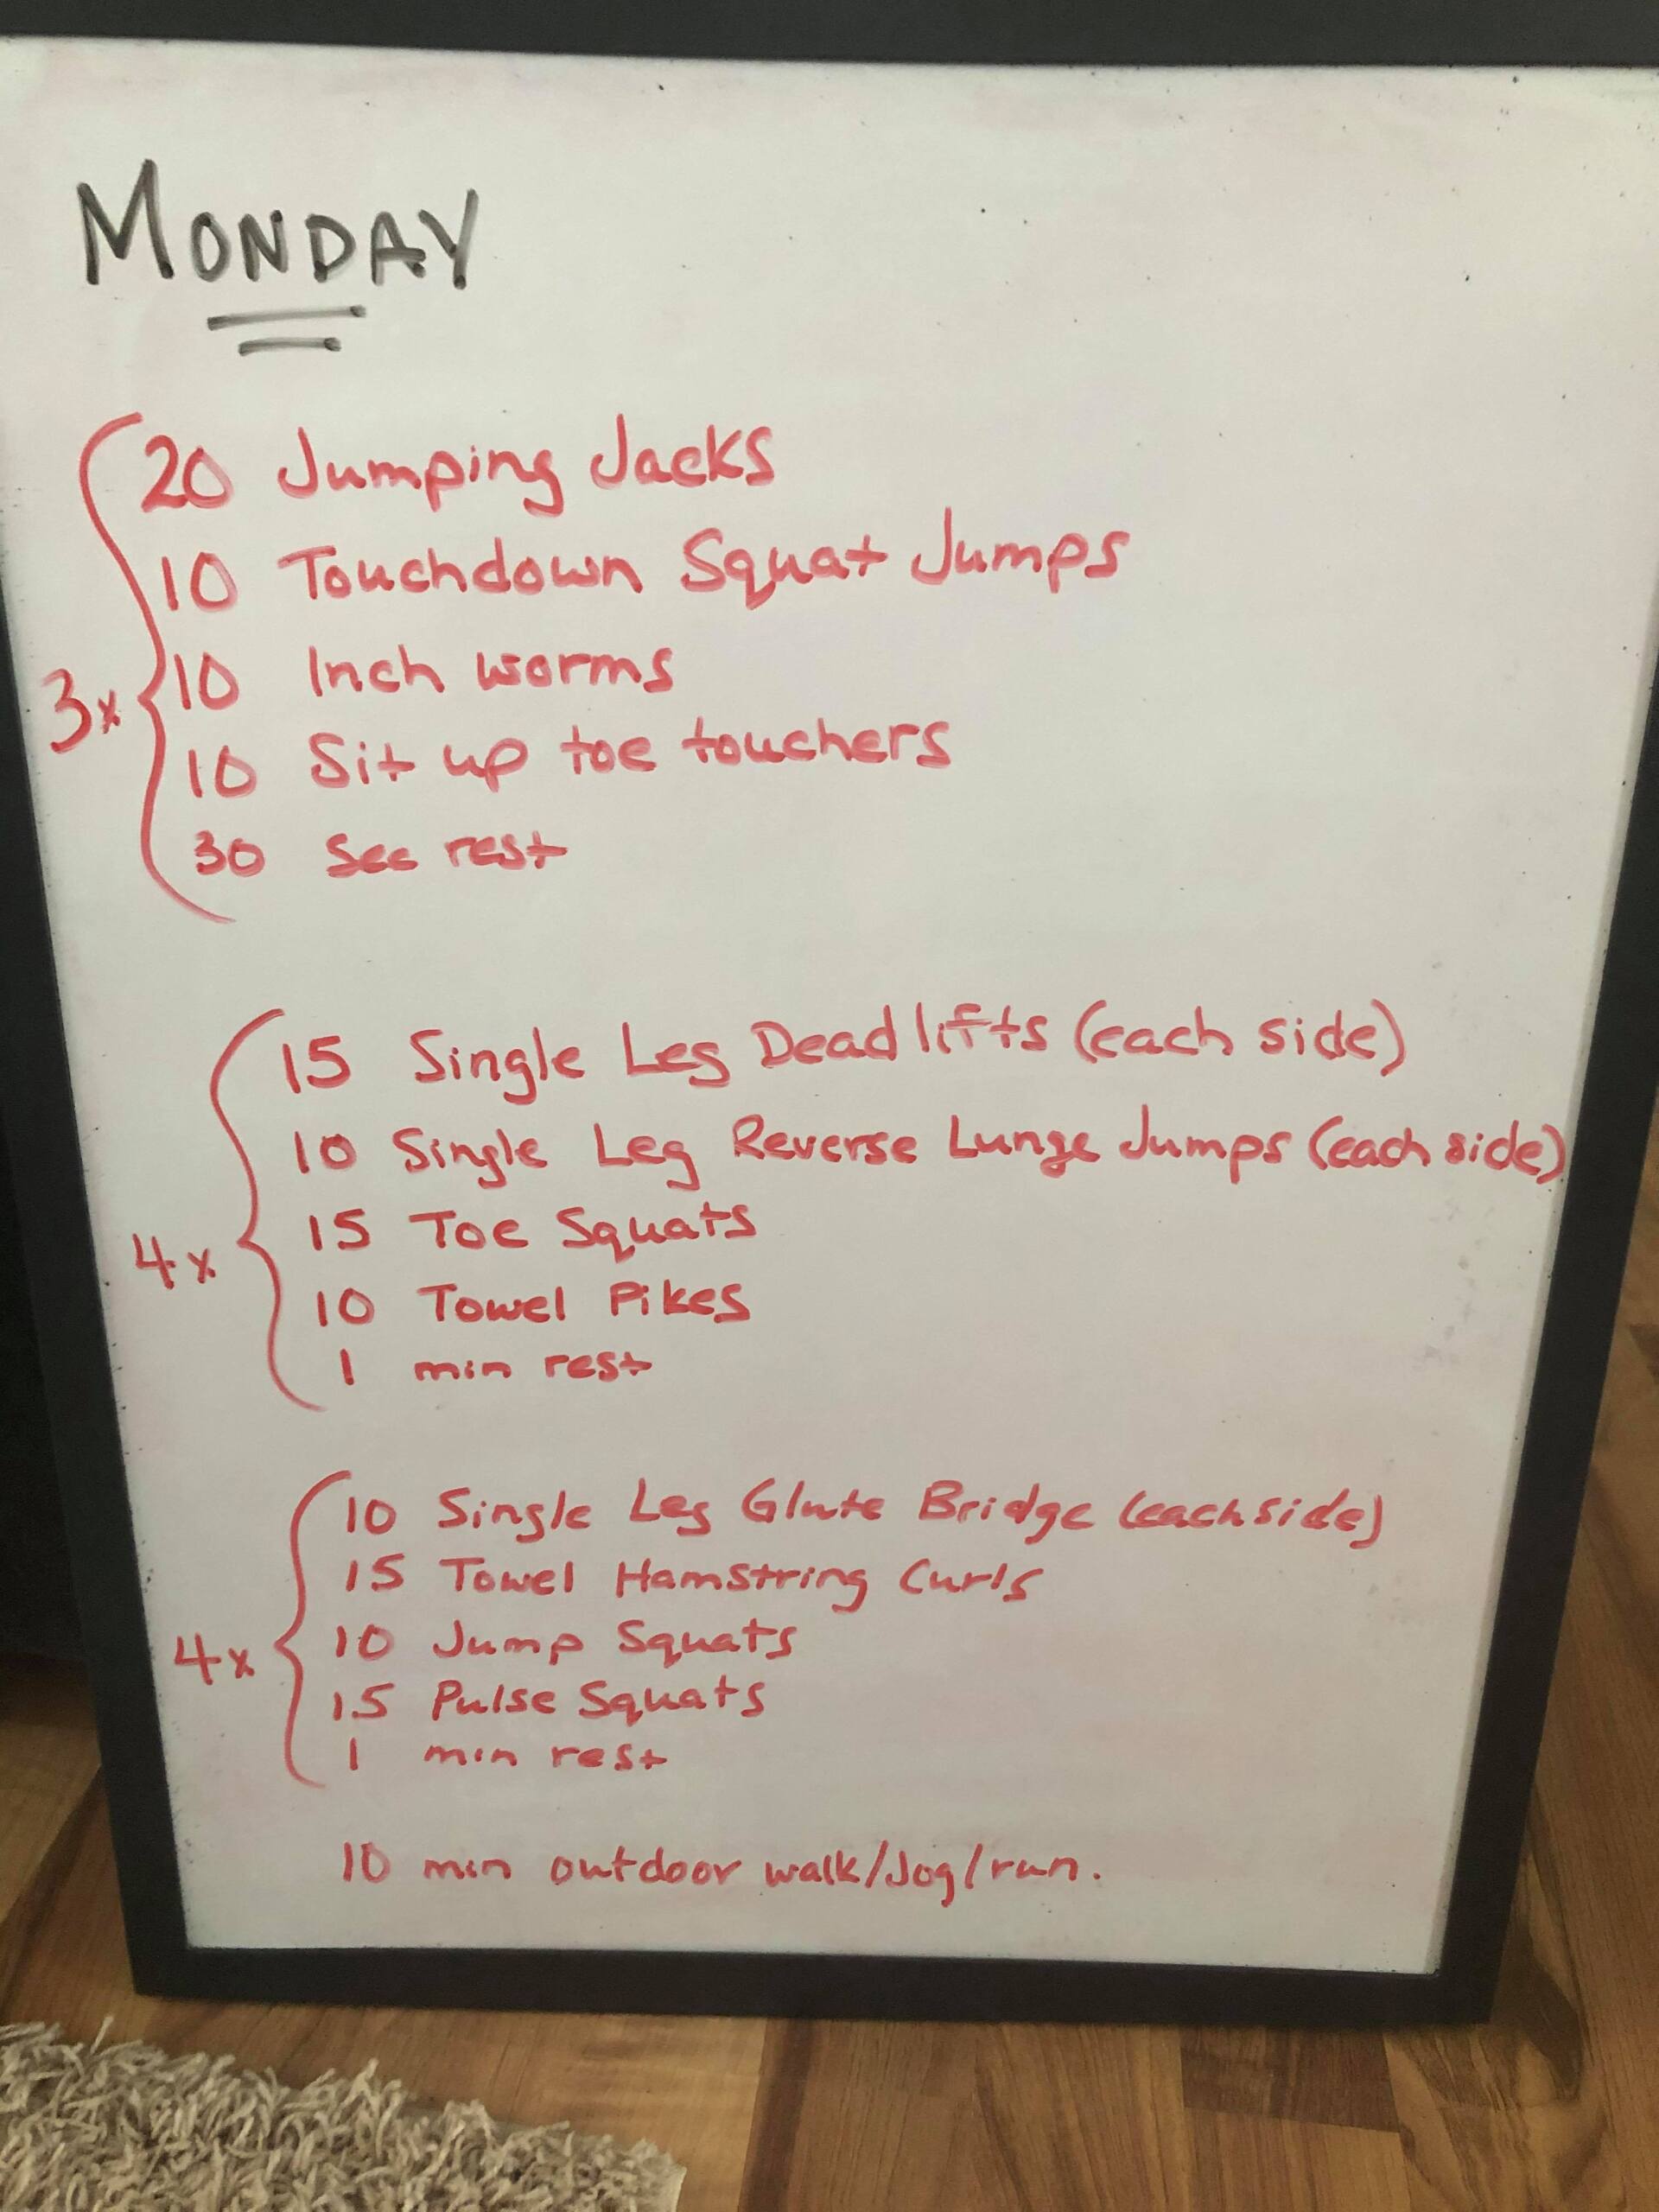 MONDAY
20 Jumping Jacks
10 Touchdown Squat Jumps
3x
10 Inch worms
10 Sit up toe touchers
30 Sec rest
15 Single Leg Deadlifts (each side)
10 Single Leg Reverse Lunge Jumps (each side)
4x
15 Toe Squats
10 Towel Pikes
1 min rest
10 Single Leg Glute Bridge (each side)
15 Towel Hamstring Curls
4x
10 Jump Squats
15 Pulse Squats
1 min rest
10 min outdoor walk/Jog/run.